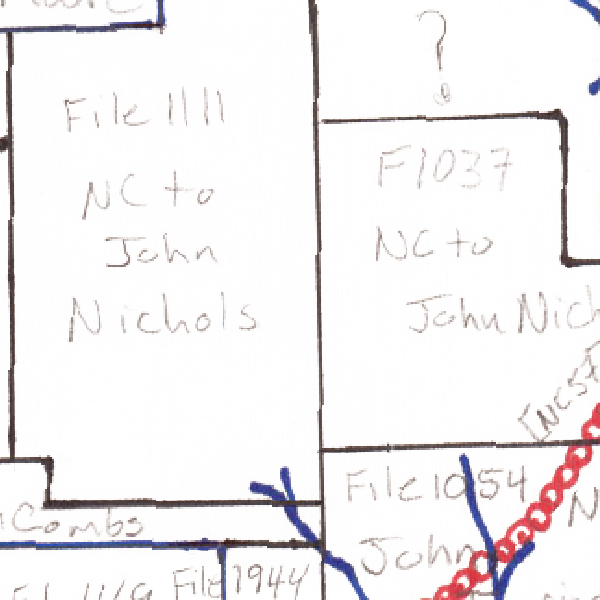 ?
File 1111
NC to
John
Nichols
F1037
NC to
John Nich
[NC57
File 1054
John
Combs
File 1944